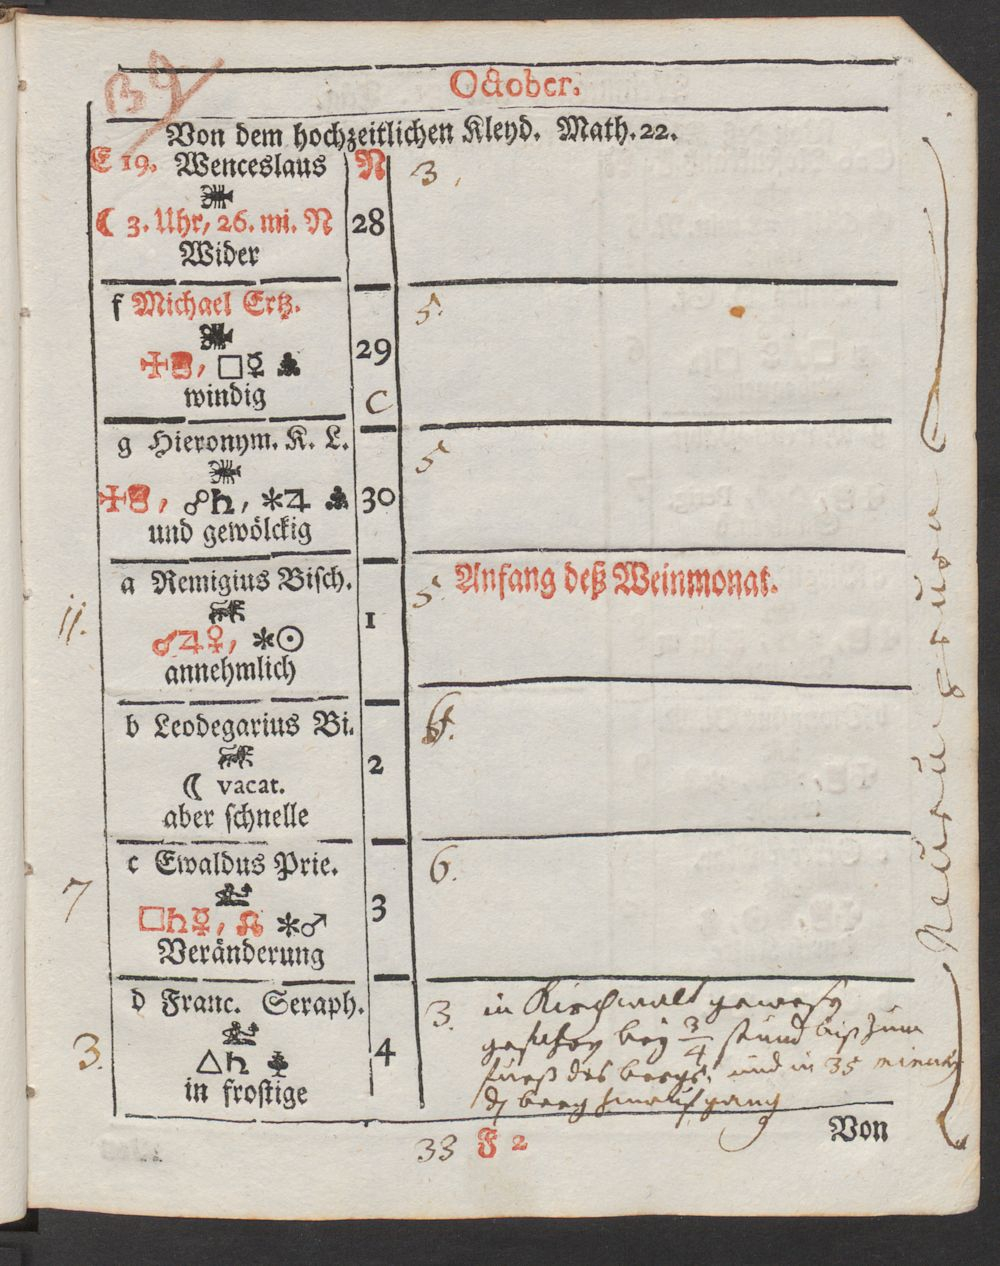 39
October.
Von dem hochzeitlichen Kleyd. Math. 22.
E 19. Wenceslaus N 3.
☾ 3. Uhr, 26. mi. N 28
Wider
f Michael Ertz. 5.
□☿ 29
windig C
g Hieronym. K. L. 5
☍♄, ✱♃ 30
und gewölckig
a Remigius Bisch. 5. Anfang deß Weinmonat.
11. ♂♃♀, ✱☉ 1
annehmlich
b Leodegarius Bi. 6.
☾ vacat. 2
aber schnelle
c Ewaldus Prie. 6.
7 □♄☿, ☊ ✱♂ 3
Veränderung
d Franc. Seraph. 3. in
bey 3/4 stund biß zum
3. △♄ 4 fueß des bergs, und in 35
in frostige berg
33 F 2 Von